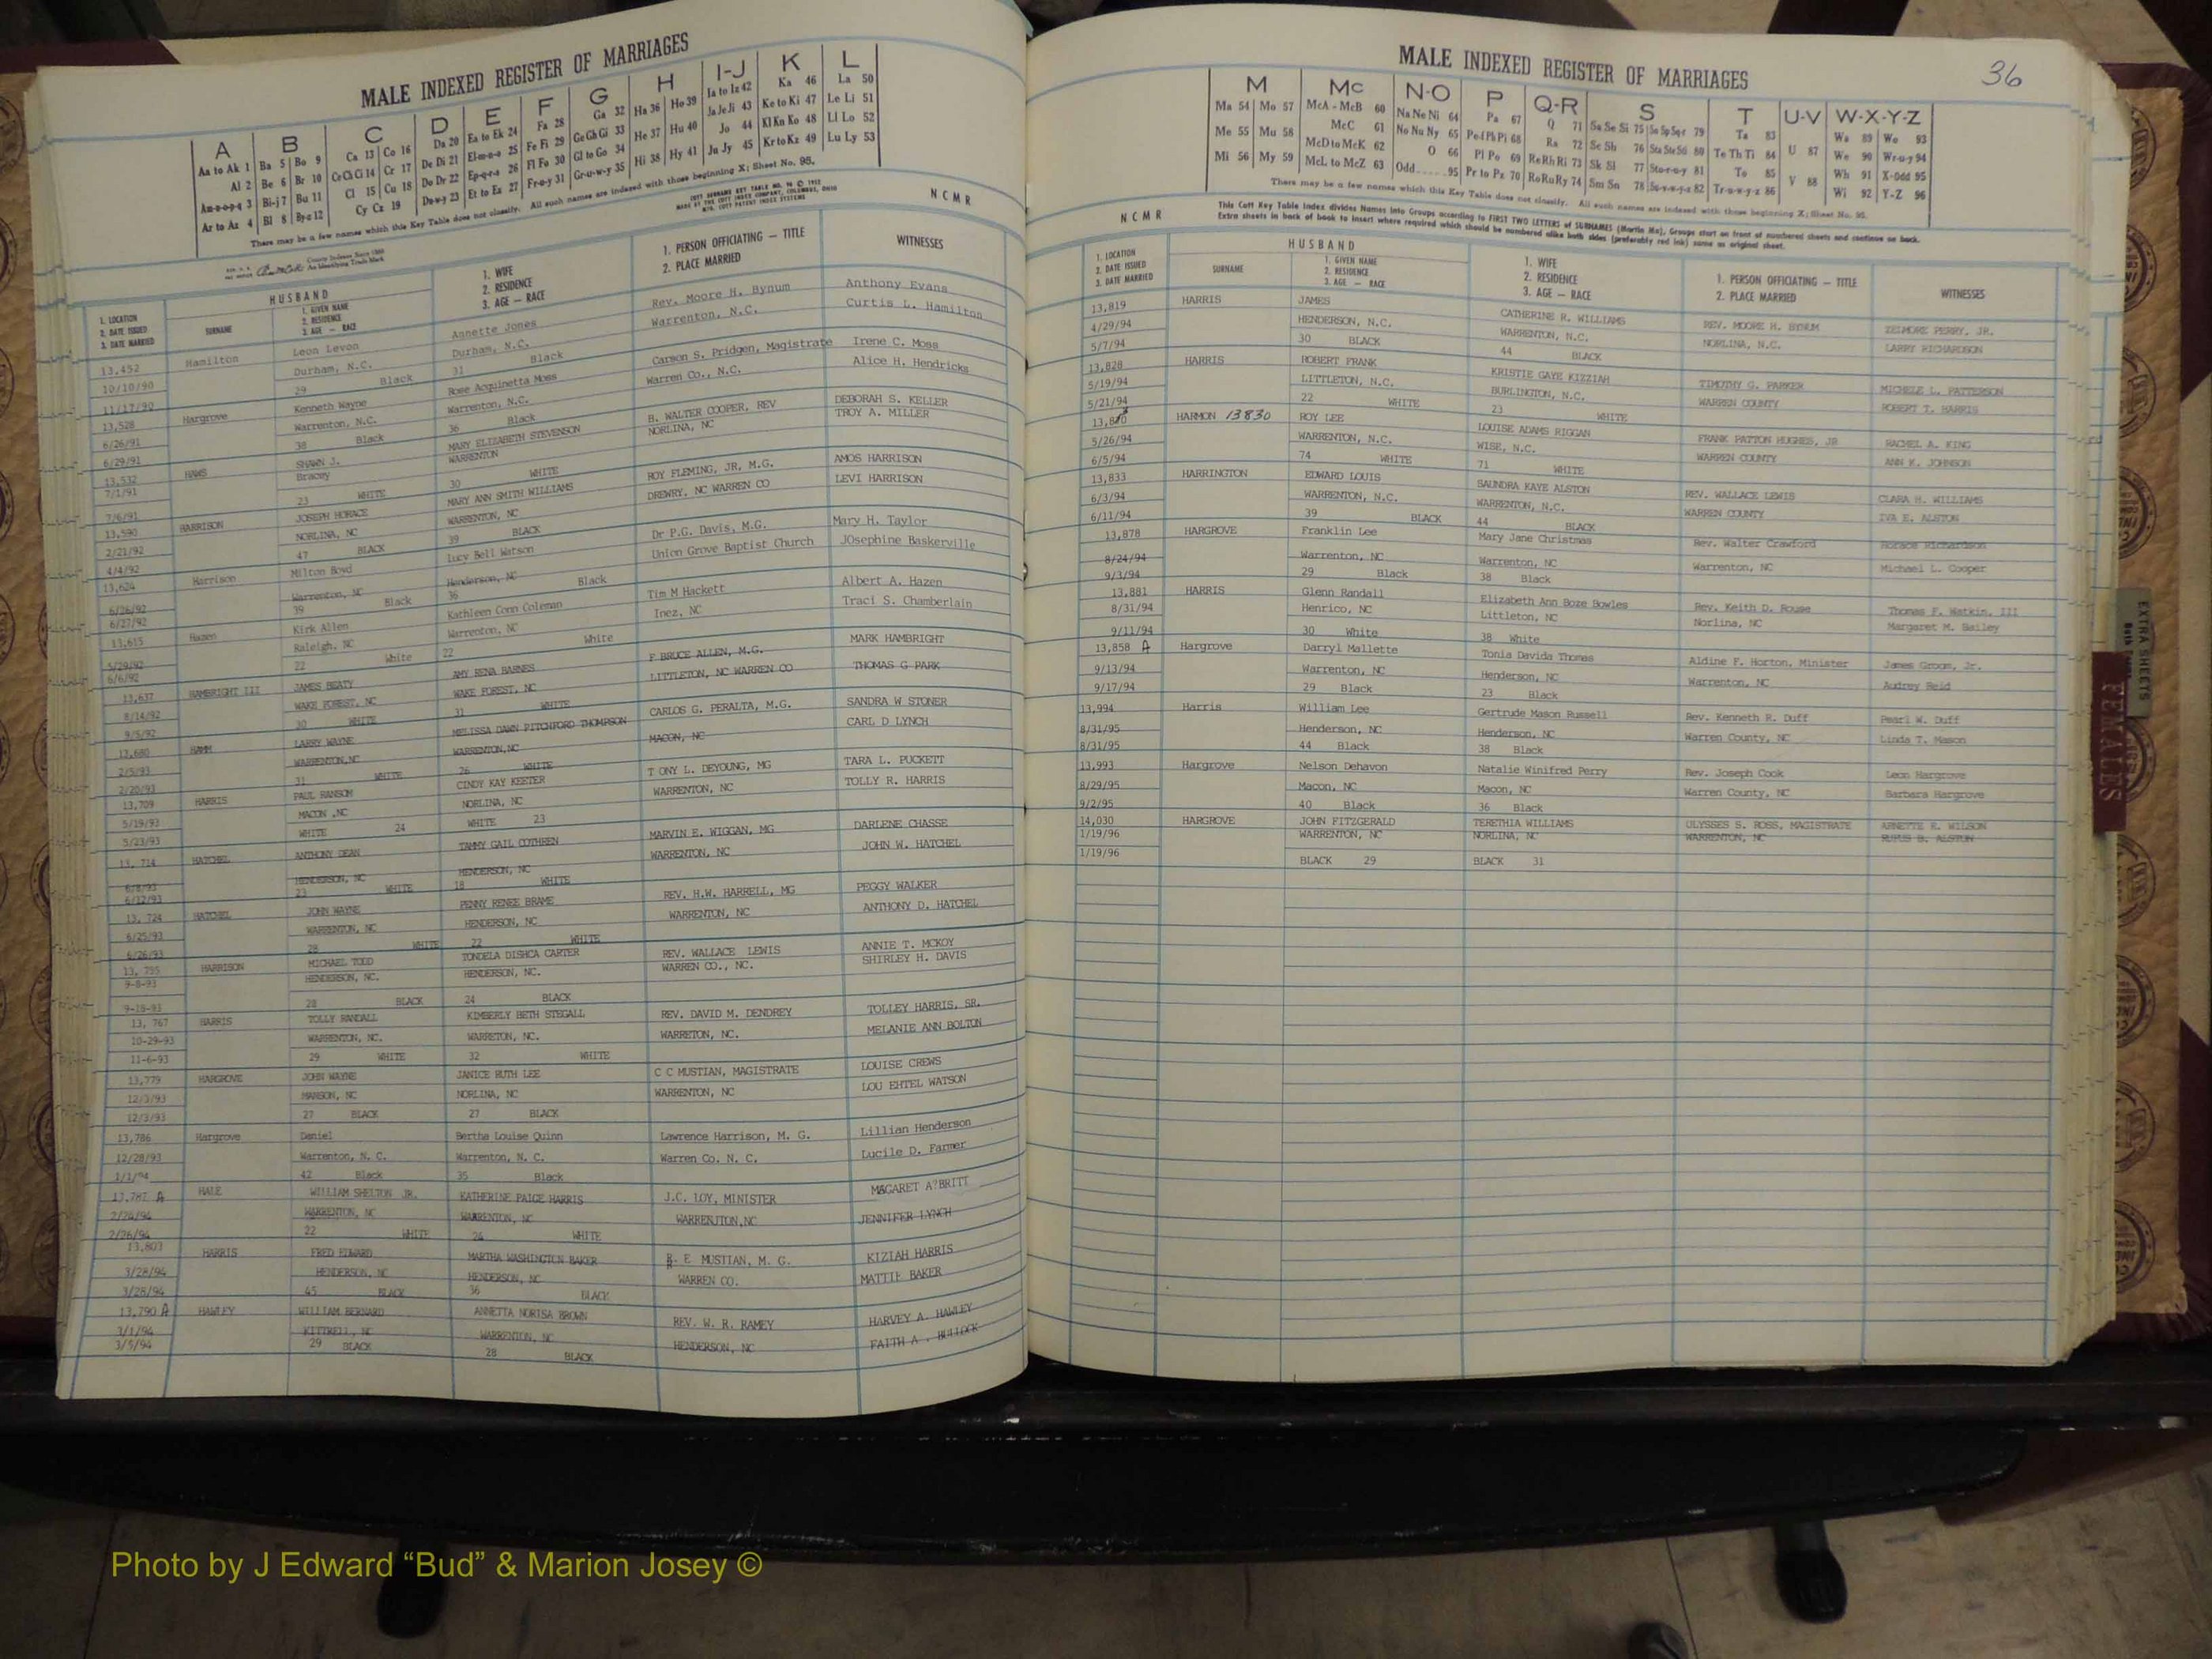 MALE INDEXED REGISTER OF MARRIAGES
A B C D E F G H I-J K L
Aa to Ak 1 Ba 5 Bo 9 Ca 13 Co 16 Da 20 Ea to Ek 24 Fa 28 Ga 32 Ha 36 Ho 39 Ia to Iz 42 Ka 46 La 50
Al 2 Be 6 Br 10 Ce Ch Ci 14 Cr 17 De Di 21 El-m-n-o 25 Fe Fi 29 Ge Gh Gi 33 He 37 Hu 40 Ja Je Ji 43 Ke to Ki 47 Le Li 51
Am-n-o-p-q 3 Bi-j 7 Bu 11 Cl 15 Cu 18 Do Dr 22 Ep-q-r-s 26 Fl Fo 30 Gl to Go 34 Hi 38 Hy 41 Jo 44 Kl Kn Ko 48 Ll Lo 52
Ar to Az 4 Bl 8 By-z 12 Cy Cz 19 Du-w-y 23 Et to Ez 27 Fr-u-y 31 Gr-u-w-y 35 Ju Jy 45 Kr to Kz 49 Lu Ly 53
There may be a few names which this Key Table does not classify. All such names are indexed with those beginning X; Sheet No. 95.
NCMR
HUSBAND
1. LOCATION
2. DATE ISSUED
3. DATE MARRIED
SURNAME
1. GIVEN NAME
2. RESIDENCE
3. AGE — RACE
1. WIFE
2. RESIDENCE
3. AGE — RACE
1. PERSON OFFICIATING — TITLE
2. PLACE MARRIED
WITNESSES
13,452 Hamilton Leon Levon Annette Jones Rev. Moore H. Bynum Anthony Evans
10/10/90 Durham, N.C. Durham, N.C. Warrenton, N.C. Curtis L. Hamilton
11/17/90 29 Black 31 Black
13,528 Hargrove Kenneth Wayne Rose Acquinetta Moss Carson S. Pridgen, Magistrate Irene C. Moss
6/26/91 Warrenton, N.C. Warrenton, N.C. Warren Co., N.C. Alice H. Hendricks
6/29/91 38 Black 36 Black
13,532 HAWS SHAWN J. MARY ELIZABETH STEVENSON B. WALTER COOPER, REV DEBORAH S. KELLER
7/1/91 Bracey WARRENTON NORLINA, NC TROY A. MILLER
7/6/91 23 WHITE 30 WHITE
13,590 HARRISON JOSEPH HORACE MARY ANN SMITH WILLIAMS ROY FLEMING, JR, M.G. AMOS HARRISON
2/21/92 NORLINA, NC WARRENTON, NC DREWRY, NC WARREN CO LEVI HARRISON
4/4/92 47 BLACK 39 BLACK
13,624 Harrison Milton Boyd Lucy Bell Watson Dr P.G. Davis, M.G. Mary H. Taylor
6/26/92 Warrenton, NC Henderson, NC Union Grove Baptist Church JOsephine Baskerville
6/27/92 39 Black 36 Black
13,615 Hazen Kirk Allen Kathleen Conn Coleman Tim M Hackett Albert A. Hazen
5/29/92 Raleigh, NC Warrenton, NC Inez, NC Traci S. Chamberlain
6/6/92 22 White 22 White
13,637 HAMBRIGHT III JAMES BEATY AMY RENA BARNES F BRUCE ALLEN, M.G. MARK HAMBRIGHT
8/14/92 WAKE FOREST, NC WAKE FOREST, NC LITTLETON, NC WARREN CO THOMAS G PARK
9/5/92 30 WHITE 31 WHITE
13,680 HAMM LARRY WAYNE MELISSA DAWN PITCHFORD THOMPSON CARLOS G. PERALTA, M.G. SANDRA W STONER
2/5/93 WARRENTON,NC WARRENTON,NC MACON, NC CARL D LYNCH
2/20/93 31 WHITE 26 WHITE
13,709 HARRIS PAUL RANSOM CINDY KAY KEETER T ONY L. DEYOUNG, MG TARA L. PUCKETT
5/19/93 MACON ,NC NORLINA, NC WARRENTON, NC TOLLY R. HARRIS
5/23/93 WHITE 24 WHITE 23
13, 714 HATCHEL ANTHONY DEAN TAMMY GAIL COTHREN MARVIN E. WIGGAN, MG DARLENE CHASSE
6/8/93 HENDERSON, NC HENDERSON, NC WARRENTON, NC JOHN W. HATCHEL
6/12/93 23 WHITE 18 WHITE
13, 724 HATCHEL JOHN WAYNE PENNY RENEE BRAME REV. H.W. HARRELL, MG PEGGY WALKER
6/25/93 WARRENTON, NC HENDERSON, NC WARRENTON, NC ANTHONY D. HATCHEL
6/26/93 28 WHITE 22 WHITE
13, 755 HARRISON MICHAEL TODD TONDELA DISHCA CARTER REV. WALLACE LEWIS ANNIE T. MCKOY
9-8-93 HENDERSON, NC. HENDERSON, NC. WARREN CO., NC. SHIRLEY H. DAVIS
9-18-93 28 BLACK 24 BLACK
13, 767 HARRIS TOLLY RANDALL KIMBERLY BETH STEGALL REV. DAVID M. DENDREY TOLLEY HARRIS, SR.
10-29-93 WARRENTON, NC. WARRETON, NC. WARRETON, NC. MELANIE ANN BOLTON
11-6-93 29 WHITE 32 WHITE
13,779 HARGROVE JOHN WAYNE JANICE RUTH LEE C C MUSTIAN, MAGISTRATE LOUISE CREWS
12/3/93 MANSON, NC NORLINA, NC WARRENTON, NC LOU EHTEL WATSON
12/3/93 27 BLACK 27 BLACK
13,786 Hargrove Daniel Bertha Louise Quinn Lawrence Harrison, M. G. Lillian Henderson
12/28/93 Warrenton, N. C. Warrenton, N. C. Warren Co. N. C. Lucile D. Farmer
1/1/94 42 Black 35 Black
13,787 A HALE WILLIAM SHELTON JR. KATHERINE PAIGE HARRIS J.C. LOY, MINISTER MAGARET A?BRITT
2/24/94 WARRENTON, NC WARRENTON, NC WARRENJTON,NC JENNIFER LYNCH
2/26/94 22 WHITE 24 WHITE
13,803 HARRIS FRED EDWARD MARTHA WASHINGTON BAKER R. E MUSTIAN, M. G. KIZIAH HARRIS
3/28/94 HENDERSON, NC HENDERSON, NC WARREN CO. MATTIE BAKER
3/28/94 45 BLACK 36 BLACK
13,790 A HAWLEY WILLIAM BERNARD ANNETTA NORISA BROWN REV. W. R. RAMEY HARVEY A. HAWLEY
3/1/94 KITTRELL, NC WARRENTON, NC HENDERSON, NC FAITH A . BULLOCK
3/5/94 29 BLACK 28 BLACK
MALE INDEXED REGISTER OF MARRIAGES 36
M Mc N-O P Q-R S T U-V W-X-Y-Z
Ma 54 Mo 57 McA - McB 60 Na Ne Ni 64 Pa 67 Q 71 Sa Se Si 75 So Sp Sq-r 79 Ta 83 U 87 Wa 89 Wo 93
Me 55 Mu 58 McC 61 No Nu Ny 65 Pe-f Ph Pi 68 Ra 72 Sc Sh 76 Sta Ste Sti 80 Te Th Ti 84 V 88 We 90 Wr-u-y 94
Mi 56 My 59 McD to McK 62 O 66 Pl Po 69 Re Rh Ri 73 Sk Sl 77 Sto-r-u-y 81 To 85 Wh 91 X-Odd 95
McL to McZ 63 Odd.....95 Pr to Pz 70 Ro Ru Ry 74 Sm Sn 78 Su-v-w-y-z 82 Tr-u-w-y-z 86 Wi 92 Y-Z 96
There may be a few names which this Key Table does not classify. All such names are indexed with those beginning X; Sheet No. 95.
This Cott Key Table Index divides Names into Groups according to FIRST TWO LETTERS of SURNAMES (Martin Ma), Groups start on front of numbered sheets and continue on back.
Extra sheets in back of book to insert where required which should be numbered alike both sides (preferably red ink) same as original sheet.
NCMR
HUSBAND
1. LOCATION
2. DATE ISSUED
3. DATE MARRIED
SURNAME
1. GIVEN NAME
2. RESIDENCE
3. AGE — RACE
1. WIFE
2. RESIDENCE
3. AGE — RACE
1. PERSON OFFICIATING — TITLE
2. PLACE MARRIED
WITNESSES
13,819 HARRIS JAMES CATHERINE R. WILLIAMS REV. MOORE H. BYNUM ZELMORE PERRY, JR.
4/29/94 HENDERSON, N.C. WARRENTON, N.C. NORLINA, N.C. LARRY RICHARDSON
5/7/94 30 BLACK 44 BLACK
13,828 HARRIS ROBERT FRANK KRISTIE GAYE KIZZIAH TIMOTHY G. PARKER MICHELE L. PATTERSON
5/19/94 LITTLETON, N.C. BURLINGTON, N.C. WARREN COUNTY ROBERT T. HARRIS
5/21/94 22 WHITE 23 WHITE
HARMON 13830 ROY LEE LOUISE ADAMS RIGGAN FRANK PATTON HUGHES, JR RACHEL A. KING
5/26/94 WARRENTON, N.C. WISE, N.C. WARREN COUNTY ANN K. JOHNSON
6/5/94 74 WHITE 71 WHITE
13,833 HARRINGTON EDWARD LOUIS SAUNDRA KAYE ALSTON REV. WALLACE LEWIS CLARA H. WILLIAMS
6/3/94 WARRENTON, N.C. WARRENTON, N.C. WARREN COUNTY IVA E. ALSTON
6/11/94 39 BLACK 44 BLACK
13,878 HARGROVE Franklin Lee Mary Jane Christmas Rev. Walter Crawford Horace Richardson
8/24/94 Warrenton, NC Warrenton, NC Warrenton, NC Michael L. Cooper
9/3/94 29 Black 38 Black
13,881 HARRIS Glenn Randall Elizabeth Ann Boze Bowles Rev. Keith D. Rouse Thomas F. Watkin, III
8/31/94 Henrico, NC Littleton, NC Norlina, NC Margaret M. Bailey
9/11/94 30 White 38 White
13,858 A Hargrove Darryl Mallette Tonia Davida Thomas Aldine F. Horton, Minister James Groom, Jr.
9/13/94 Warrenton, NC Henderson, NC Warrenton, NC Audrey Reid
9/17/94 29 Black 23 Black
13,994 Harris William Lee Gertrude Mason Russell Rev. Kenneth R. Duff Pearl W. Duff
8/31/95 Henderson, NC Henderson, NC Warren County, NC Linda T. Mason
8/31/95 44 Black 38 Black
13,993 Hargrove Nelson Dehavon Natalie Winifred Perry Rev. Joseph Cook Leon Hargrove
8/29/95 Macon, NC Macon, NC Warren County, NC Barbara Hargrove
9/2/95 40 Black 36 Black
14,030 HARGROVE JOHN FITZGERALD TERETHIA WILLIAMS ULYSSES S. ROSS, MAGISTRATE ARNETTE R. WILSON
1/19/96 WARRENTON, NC NORLINA, NC WARRENTON, NC RUFUS B. ALSTON
1/19/96 BLACK 29 BLACK 31
EXTRA SHEETS
FEMALES
Photo by J Edward “Bud” & Marion Josey ©